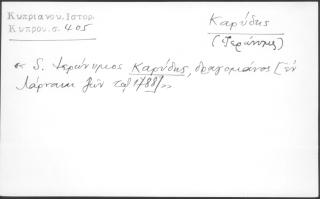 Κυπριανου. Ιστορ.
Κυπρου. σ. 405
Καρύδης
(Ιερώνυμος)
« S. Ιερώνυμος Καρύδης, δραγομάνος [ἐν
Λάρνακι ζῶν τῷ 1788] »